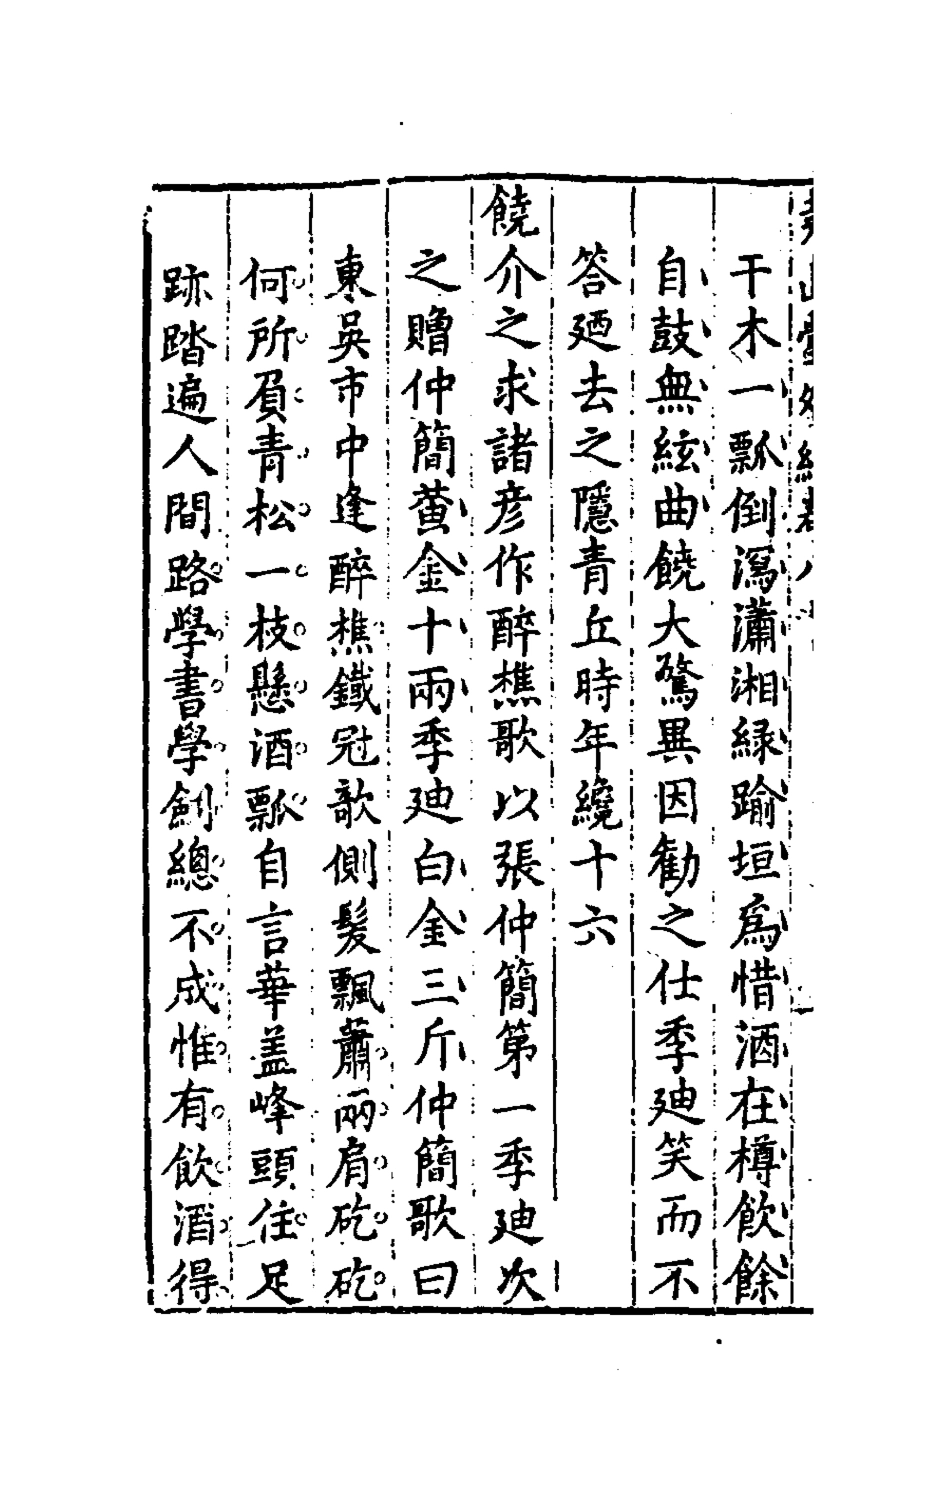 干木一瓢倒瀉瀟湘緑踰垣爲惜酒在樽飲餘
自鼓無絃曲饒大驚異因勸之仕季廸笑而不
答廼去之隱青丘時年纔十六
饒介之求諸彦作醉樵歌以張仲簡第一季廸次
之贈仲簡黄金十兩季廸白金三斤仲簡歌曰
東吳市中逢醉樵鐵冠欹側髮飄蕭兩肩矻矻
何所負青松一枝懸酒瓢自言華盖峰頭住足
跡踏遍人間路學書學劍總不成惟有飲酒得